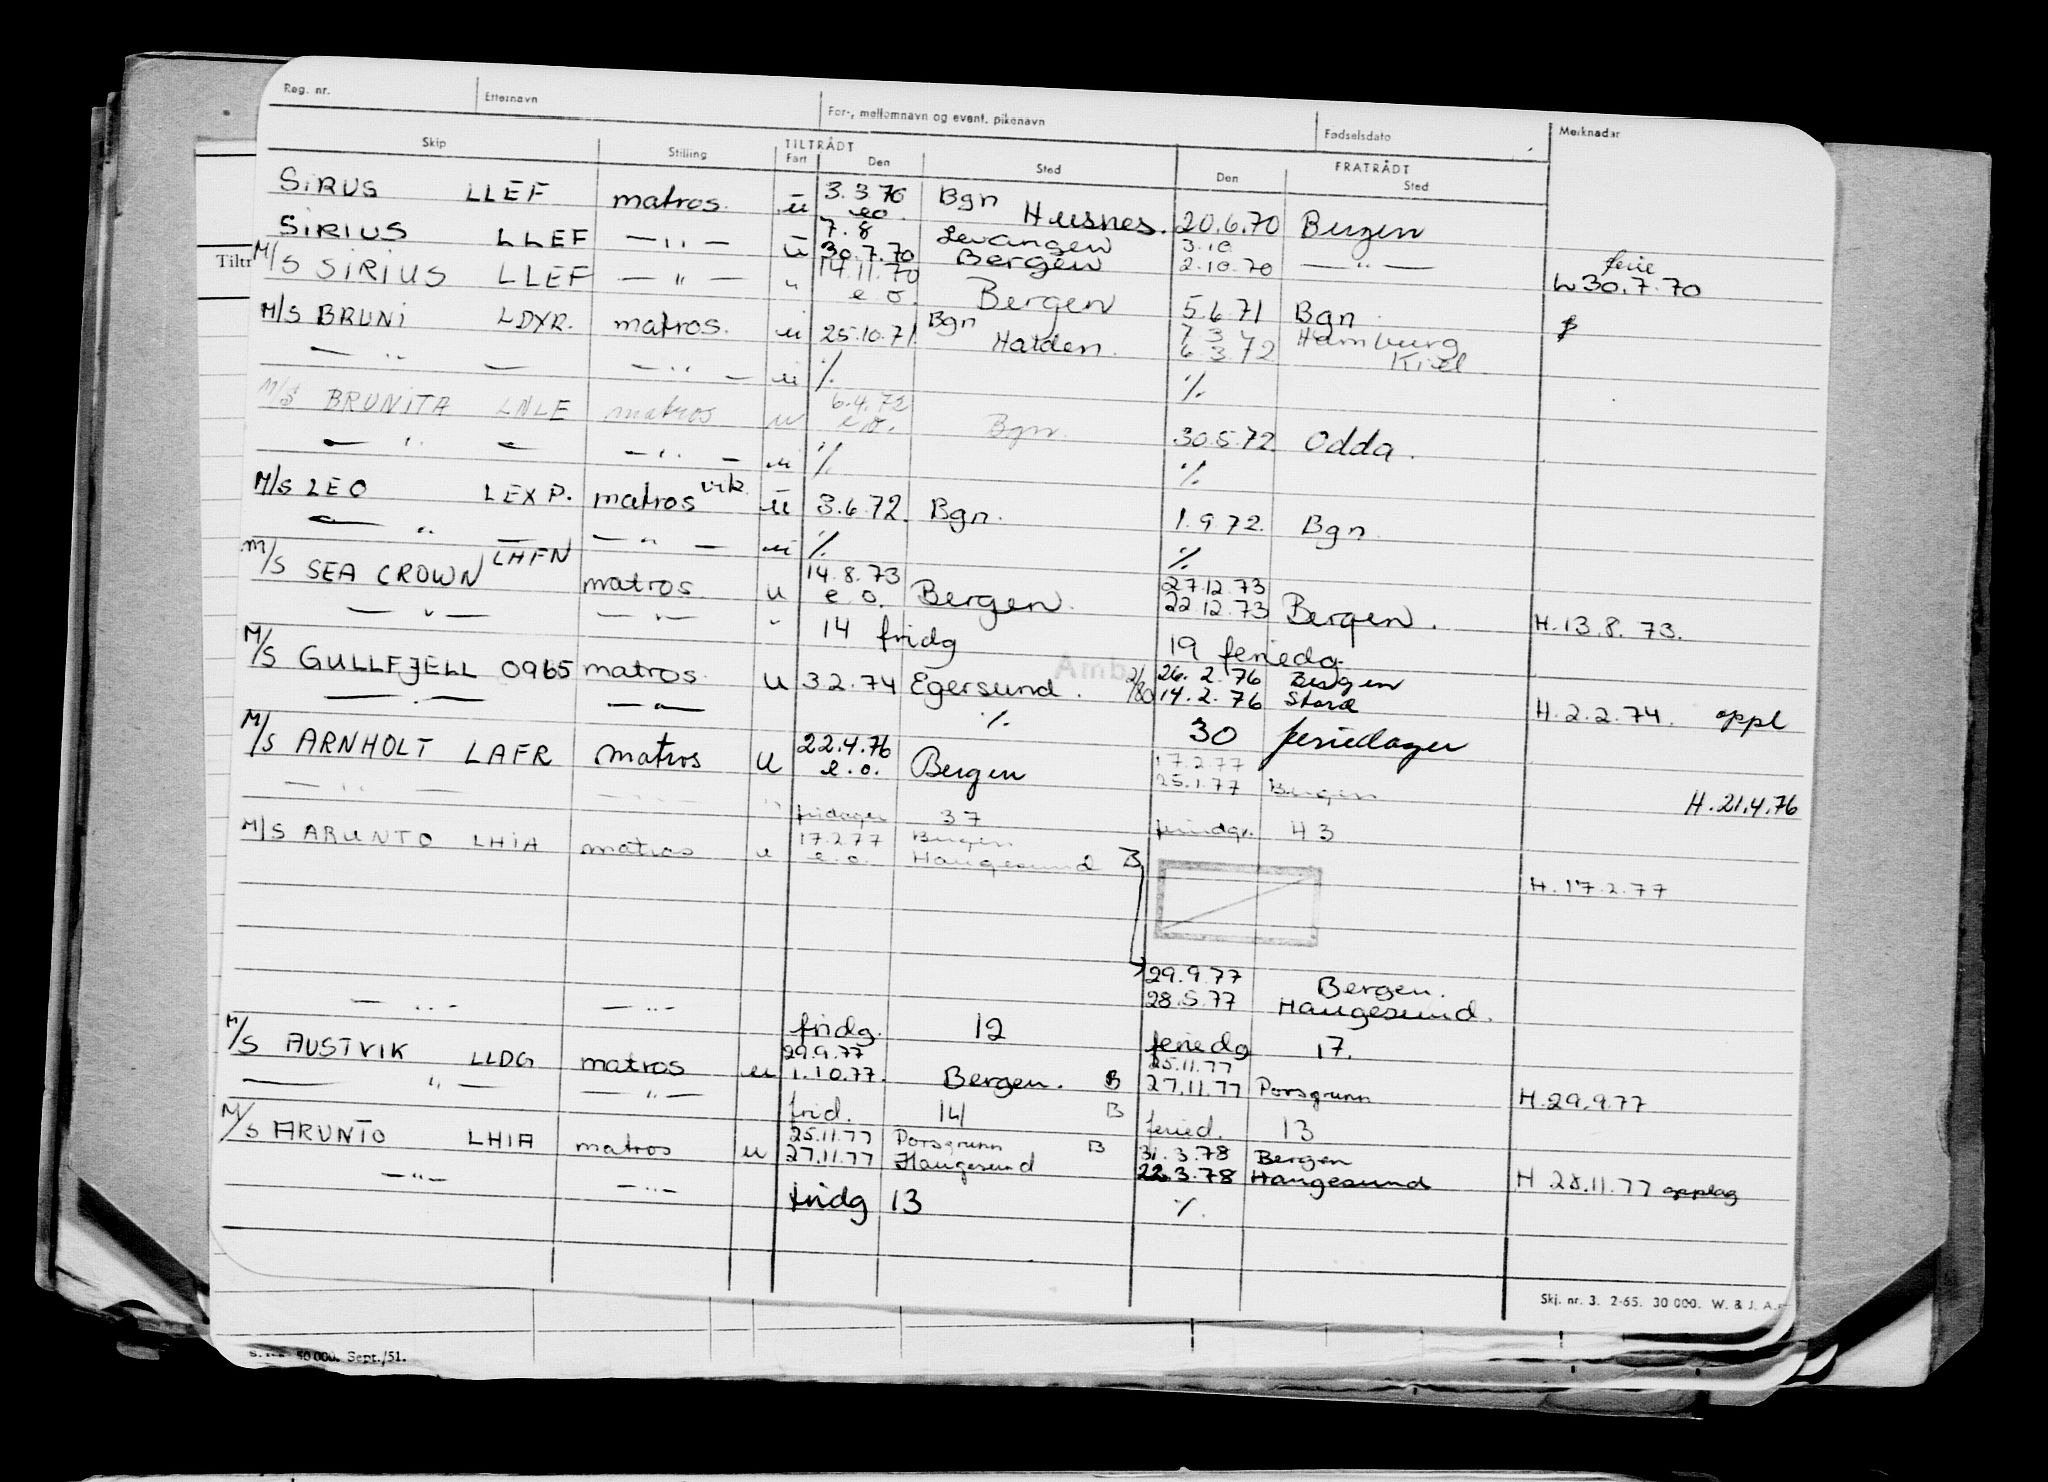 Reg. nr. Etternavn For-, mellomnavn og event. pikenavn Fødselsdato Merknader
Skip Stilling TILTRÅDT Fart Den Sted FRATRÅDT Den Sted
SIRUS LLEF matros. u 3.3.70 e.o. Bgn Husnes. 20.6.70 Bergen
SIRIUS LLEF — " — u 7.8 30.7.70 Levanger Bergen 3.10 2.10.70 — " — ferie
H 30.7.70
M/S SIRIUS LLEF — " — " 14.11.70 e.o. Bergen 5.6.71 Bgn
M/S BRUNI LDYR. matros. u 25.10.71 Bgn Halden. 7 3 6 3 72 Hamburg Kiel
— " — — " — u % %
M/S BRUNITA LNLE matros u 6.4.72 e.o. Bgn. 30.5.72 Odda.
— " — — " — u % %
M/S LEO LEXP. matros vik. u 3.6.72. Bgn. 1.9.72. Bgn.
— " — — " — u % %
M/S SEA CROWN LHFN matros. u 14.8.73 e.o. Bergen. 27.12.73 22.12.73 Bergen. H.13.8.73.
— " — — " — " 14 fridg 19 feriedg.
M/S GULLFJELL 0965 matros. u 3.2.74 Egersund. 2/80 26.2.76 14.2.76 Bergen Stord H.2.2.74. oppl
— " — — " — % 30 feriedager
M/S ARNHOLT LAFR matros u 22.4.76 e.o. Bergen 17.2.77 25.1.77 Bergen H.21.4.76
— " — — " — " fridager 37 feriedgr. 43
M/S ARUNTO LHIA matros u 17.2.77 e.o. Bergen Haugesund B H.17.2.77
29.9.77 Bergen.
28.5.77 Haugesund.
— " — — " — fridg. 12 feriedg 17.
M/S AUSTVIK LLDG matros u 29.9.77 1.10.77. Bergen. B 25.11.77 27.11.77 Porsgrunn H.29.9.77
— " — — " — frid. 14 B feried. 13
M/S ARUNTO LHIA matros u 25.11.77 27.11.77 Porsgrunn Haugesund B 31.3.78 22.3.78 Bergen Haugesund H 28.11.77 opplag
— " — — " — fridg 13 %
Skj. nr. 3. 2-65. 30 000. W. & J. A.
50 000. Sept./51.
Tiltr